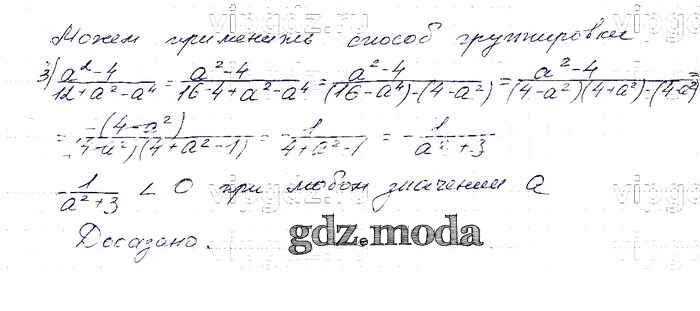 vipgdz.ru vipgdz.ru
Можем применить способ группировки
3) a²-4/12+a²-a⁴ = a²-4/16-4+a²-a⁴ = a²-4/(16-a⁴)-(4-a²) = a²-4/(4-a²)(4+a²)-(4-a²)
= -(4-a²)/(4-a²)(4+a²-1) = -1/4+a²-1 = -1/a²+3
-1/a²+3 < 0 при любом значении a
Доказано.
gdz.moda